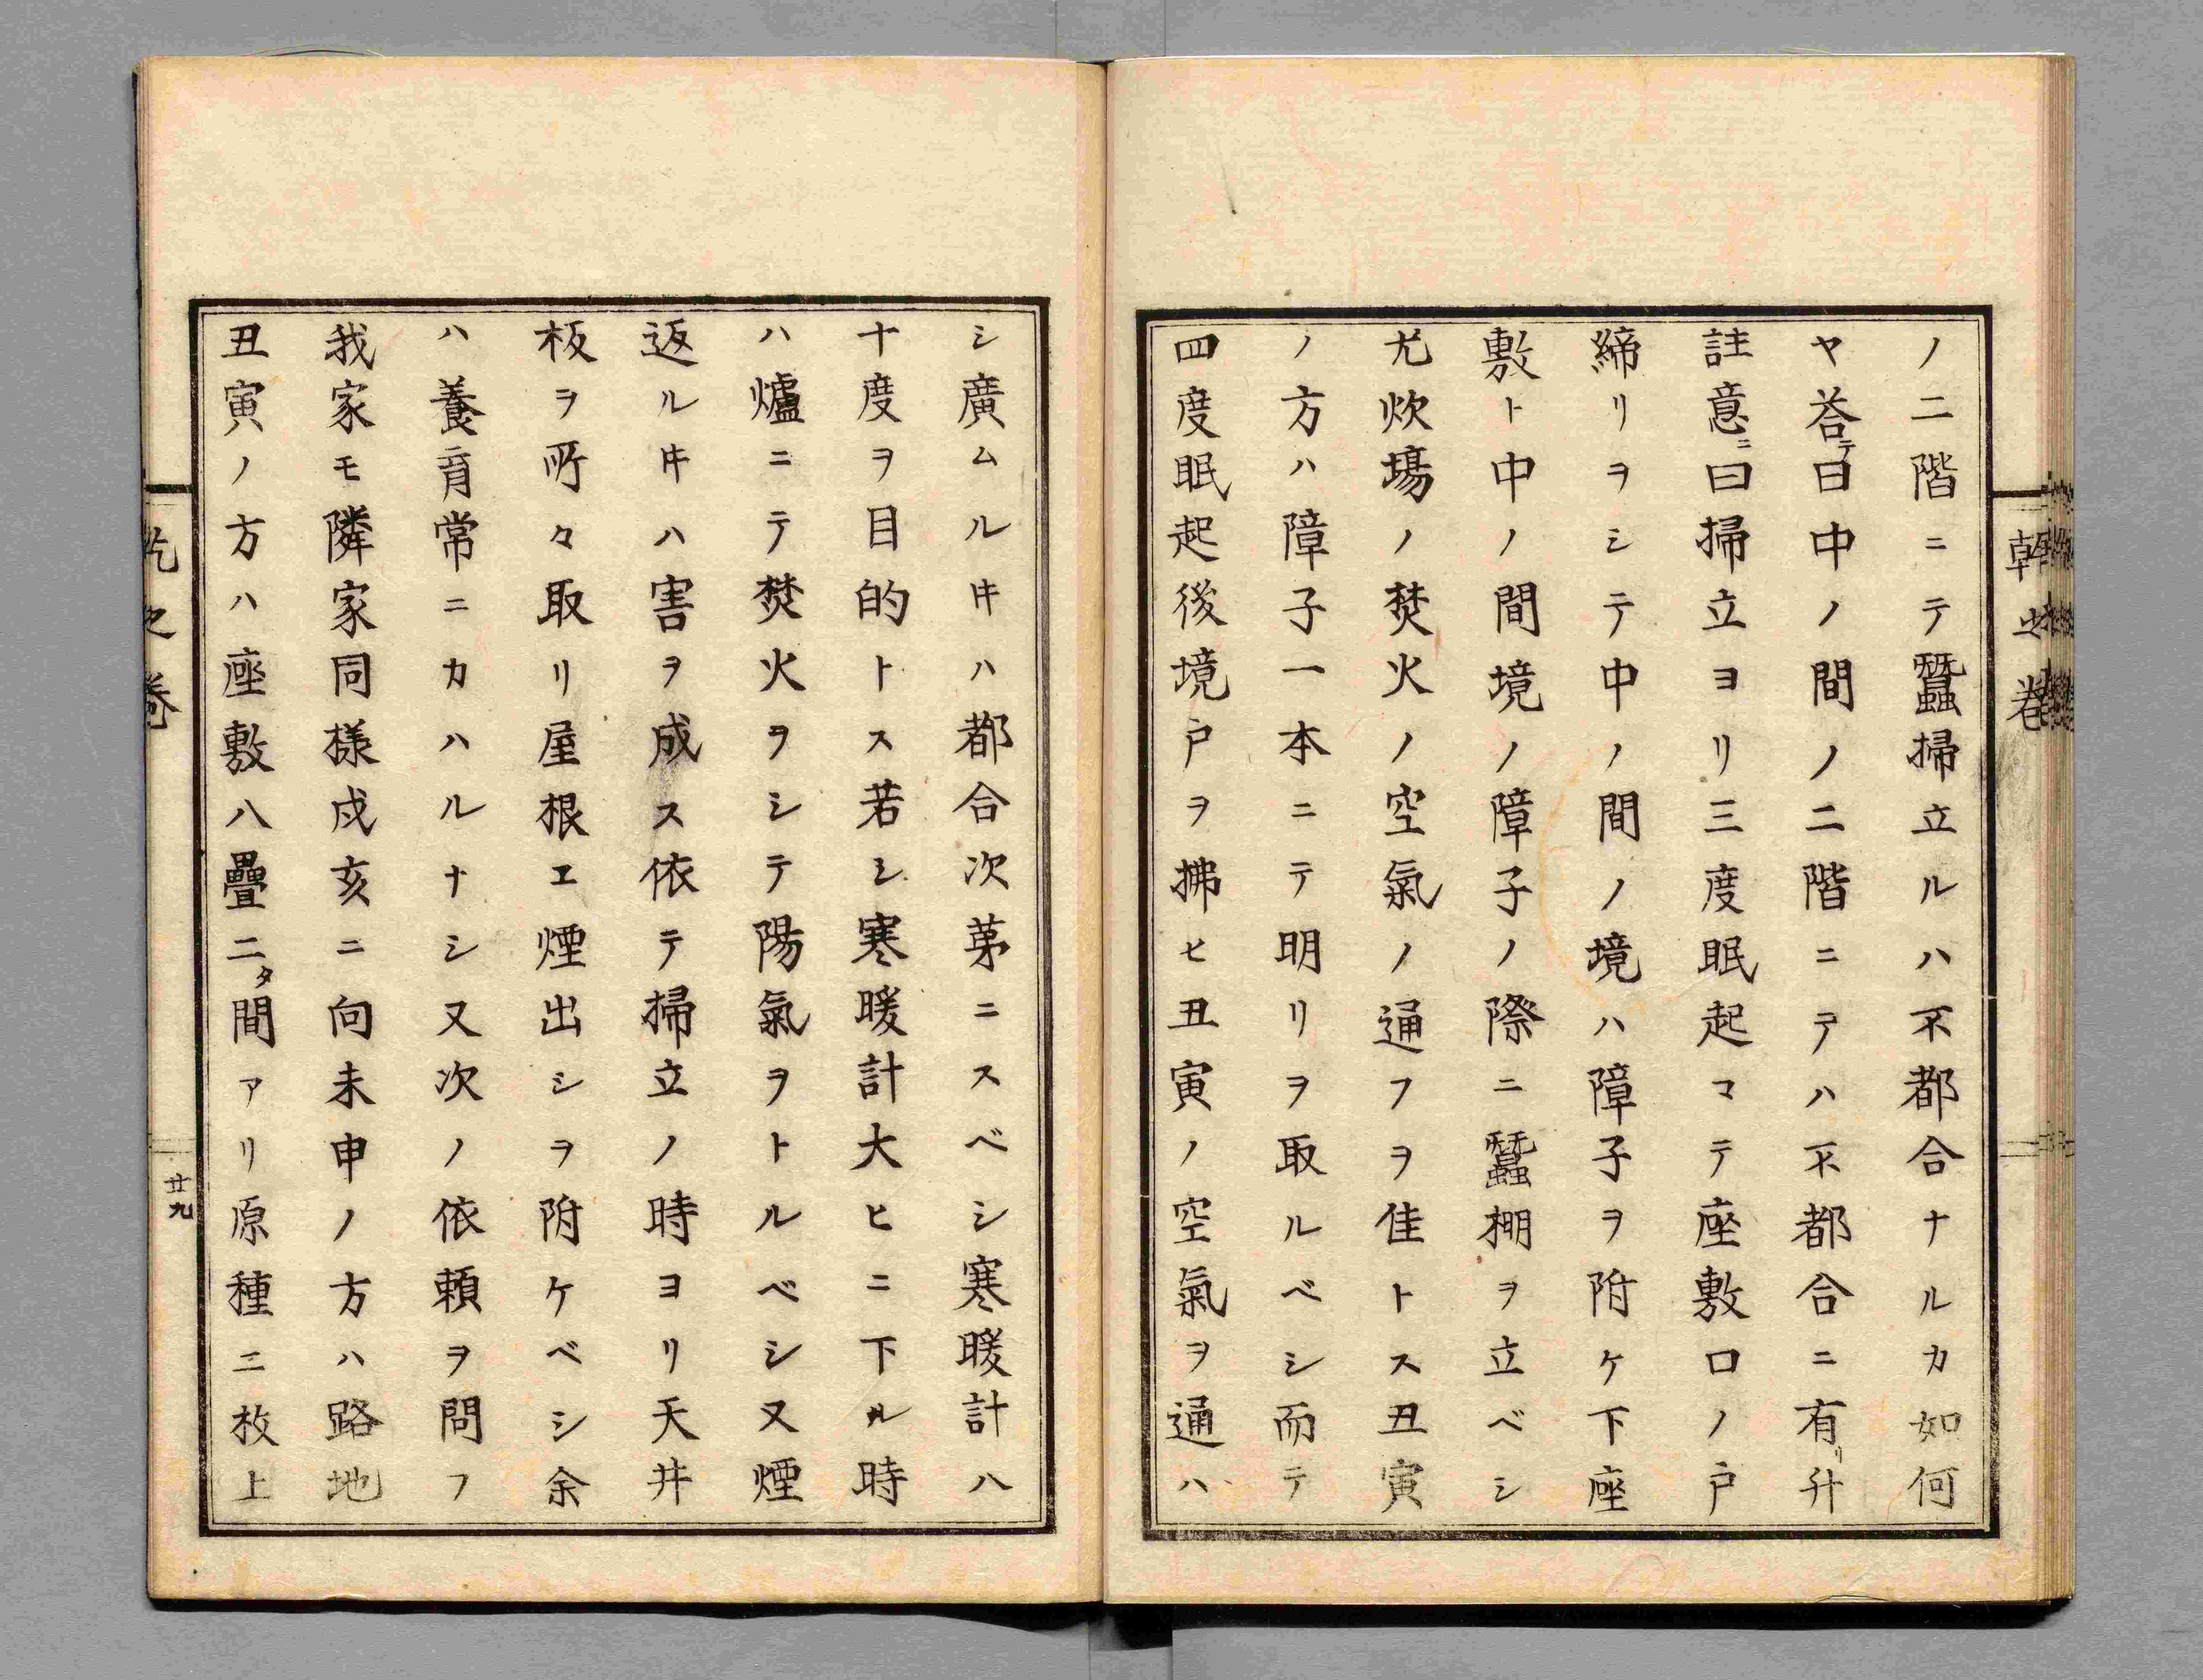 乾之巻
ノ二階ニテ蠶掃立ルハ不都合ナルカ如何
ヤ荅テ曰中ノ間ノ二階ニテハ不都合ニ有リ升
註意ニ曰掃立ヨリ三度眠起マテ座敷口ノ戸
締リヲシテ中ノ間ノ境ハ障子ヲ附ケ下座
敷ト中ノ間境ノ障子ノ際ニ蠶棚ヲ立ベシ
尤炊塲ノ焚火ノ空氣ノ通フヲ佳トス丑寅
ノ方ハ障子一本ニテ明リヲ取ルベシ而テ
四度眠起後境戸ヲ拂ヒ丑寅ノ空氣ヲ通ハ
シ廣ムルヰハ都合次苐ニスベシ寒暖計八
十度ヲ目的トス若シ寒暖計大ヒニ下ル時
ハ爐ニテ焚火ヲシテ陽氣ヲトルベシ又煙
返ルヰハ害ヲ成ス依テ掃立ノ時ヨリ天井
板ヲ所々取リ屋根エ煙出シヲ附ケベシ余
ハ養育常ニカハルナシ又次ノ依頼ヲ問フ
我家モ隣家同様戌亥ニ向未申ノ方ハ路地
丑寅ノ方ハ座敷八疊二タ間アリ原種二枚上
乾之巻
廿九